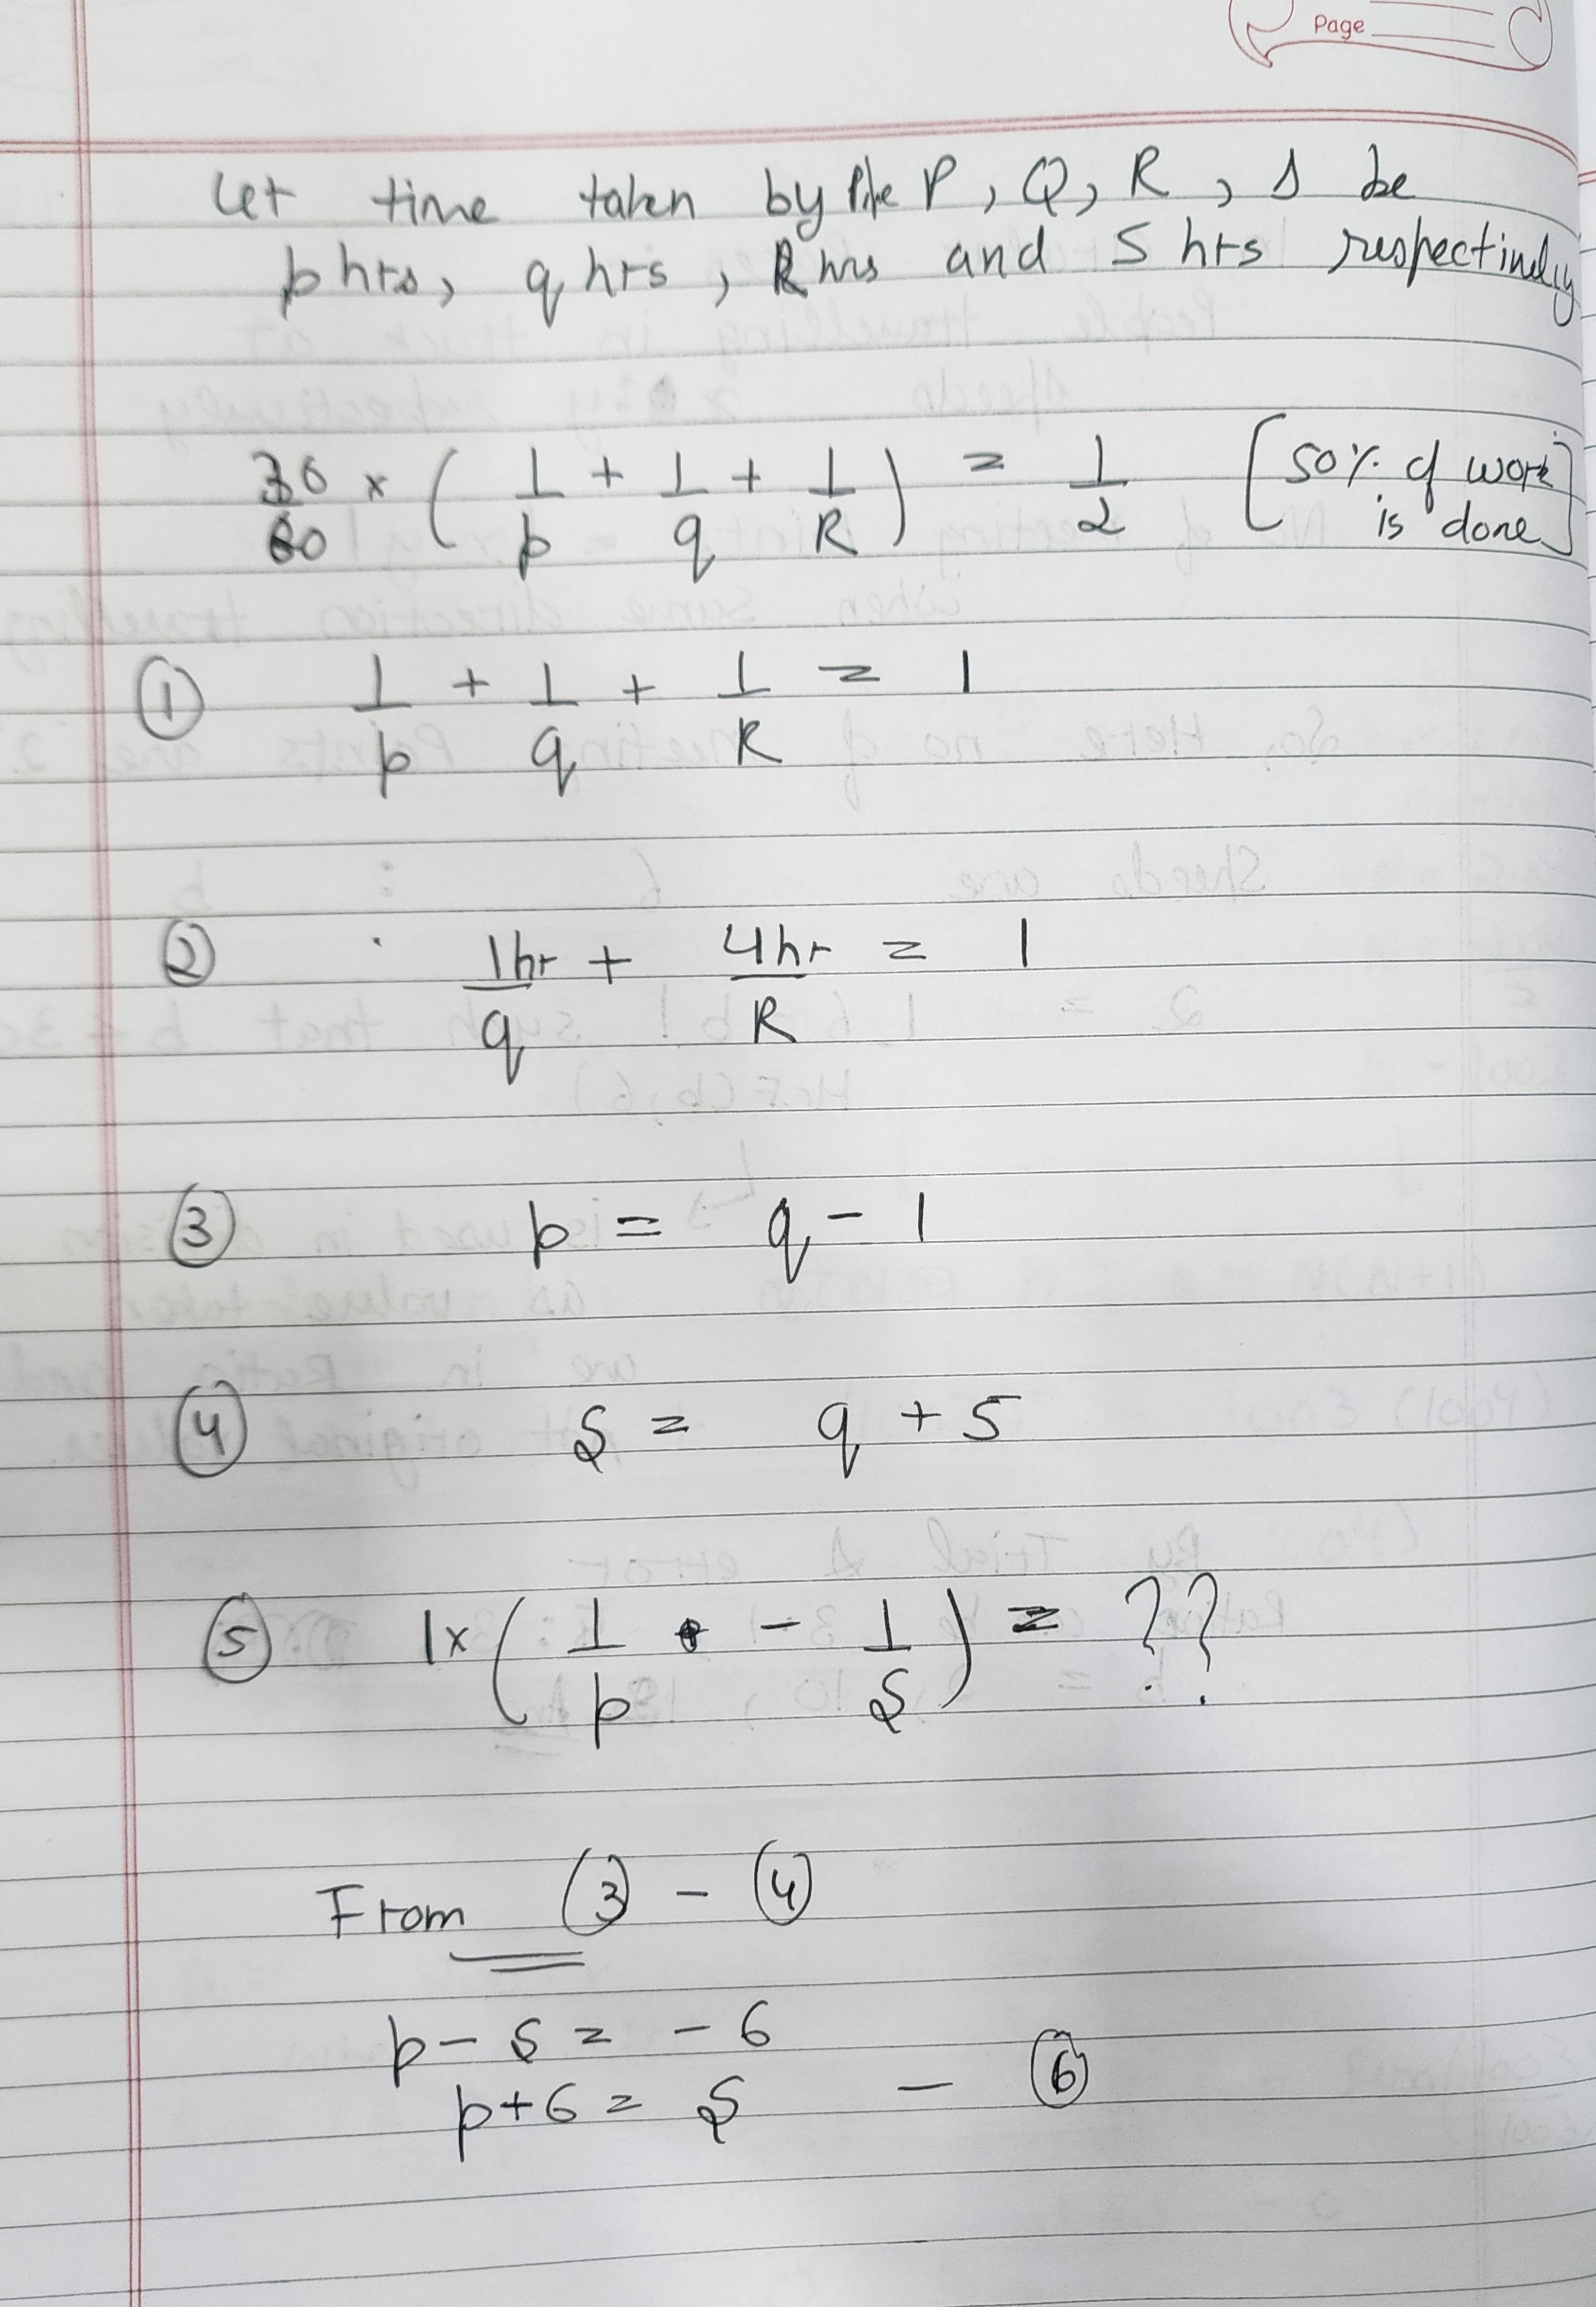 Page
Let time taken by Pipe P, Q, R, S be
p hrs, q hrs, R hrs and S hrs respectively
30/60 × (1/p + 1/q + 1/R) = 1/2 [50% of work is done]
① 1/p + 1/q + 1/R = 1
② 1hr/q + 4hr/R = 1
③ p = q - 1
④ S = q + 5
⑤ 1 × (1/p - 1/S) = ??
From ③ - ④
p - S = - 6
p + 6 = S - ⑥